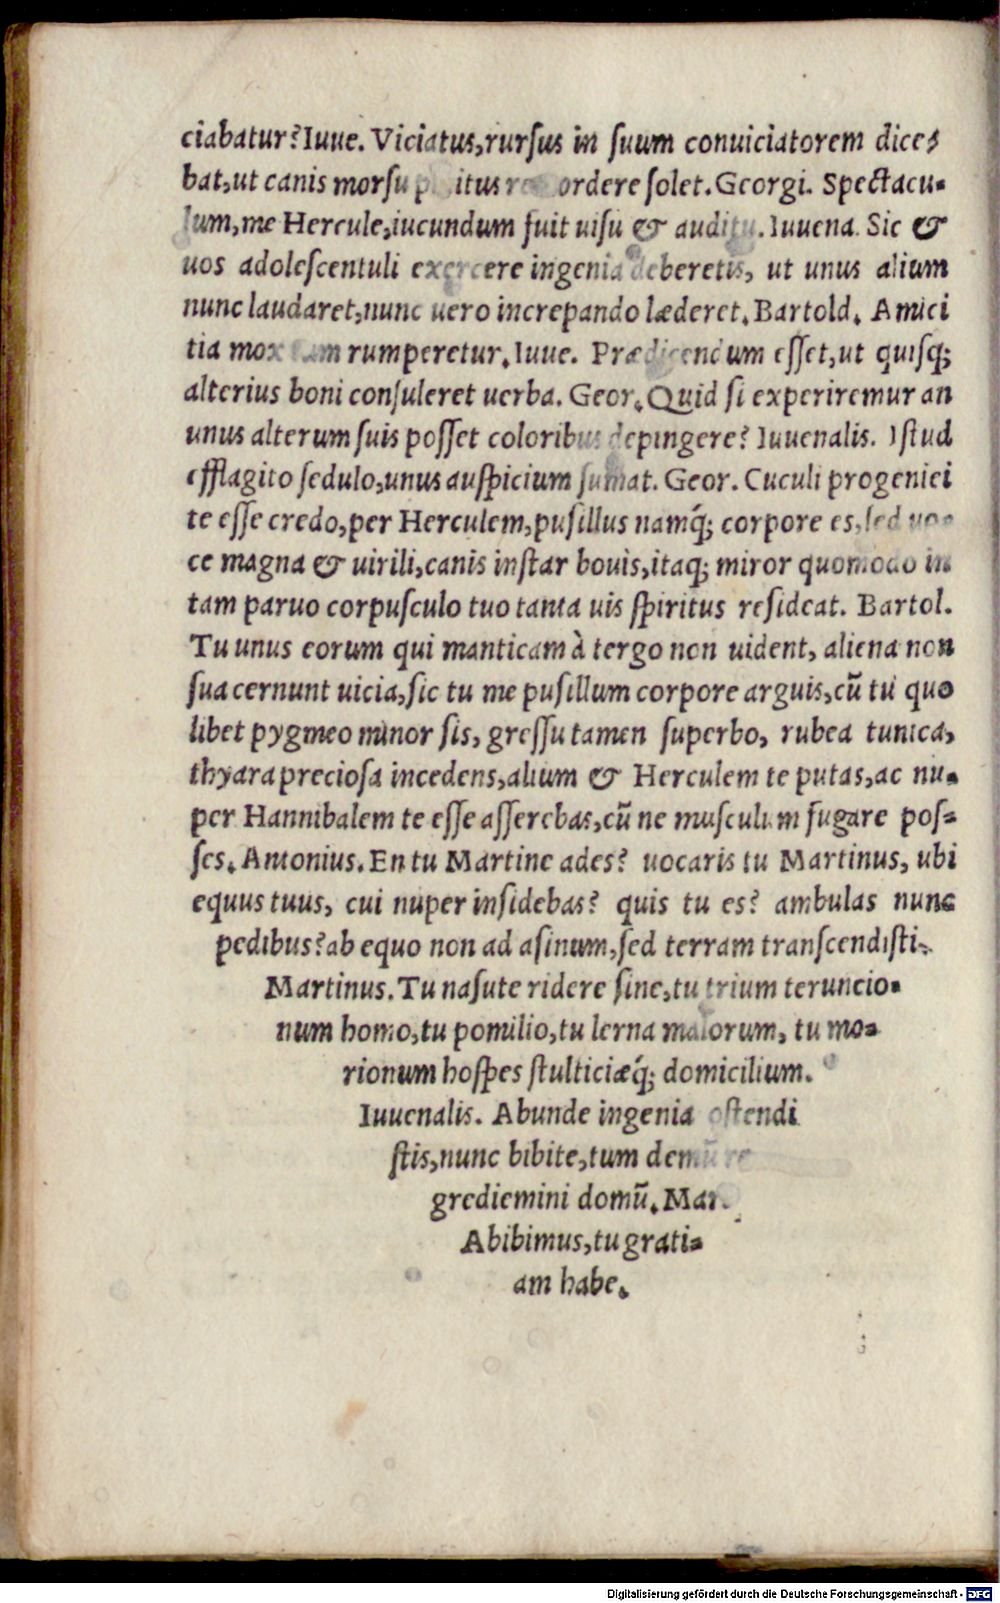 ciabatur? Iuue. Viciatus, rursus in suum conuiciatorem dice⸗
bat, ut canis morsu solet. Georgi. Spectacu⸗
lum, me Hercule, iucundum fuit uisu & auditu. Iuuena. Sic &
uos adolescentuli exercere ingenia deberetis, ut unus alium
nunc laudaret, nunc uero increpando læderet. Bartold. Amici
tia mox rumperetur. Iuue. Prædicendum esset, ut quisq;
alterius boni consuleret uerba. Geor. Quid si experiremur an
unus alterum suis posset coloribus depingere? Iuuenalis. Istud
efflagito sedulo, unus auspicium sumat. Geor. Cuculi progeniei
te esse credo, per Herculem, pusillus namq́; corpore es, sed uo⸗
ce magna & uirili, canis instar bouis, itaq; miror quomodo in
tam paruo corpusculo tuo tanta uis spiritus resideat. Bartol.
Tu unus eorum qui manticam à tergo non uident, aliena non
sua cernunt uicia, sic tu me pusillum corpore arguis, cū tu quo
libet pygmeo minor sis, gressu tamen superbo, rubea tunica,
thyara preciosa incedens, alium & Herculem te putas, ac nu⸗
per Hannibalem te esse asserebas, cū ne musculum fugare pos⸗
ses. Antonius. En tu Martine ades? uocaris tu Martinus, ubi
equus tuus, cui nuper insidebas? quis tu es? ambulas nunc
pedibus? ab equo non ad asinum, sed terram transcendisti.
Martinus. Tu nasute ridere sine, tu trium teruncio⸗
num homo, tu pomilio, tu lerna malorum, tu mo⸗
rionum hospes stulticiæq́; domicilium.
Iuuenalis. Abunde ingenia ostendi
stis, nunc bibite, tum demū re
grediemini domū. Mar.
Abibimus, tu grati⸗
am habe.
Digitalisierung gefördert durch die Deutsche Forschungsgemeinschaft - DFG